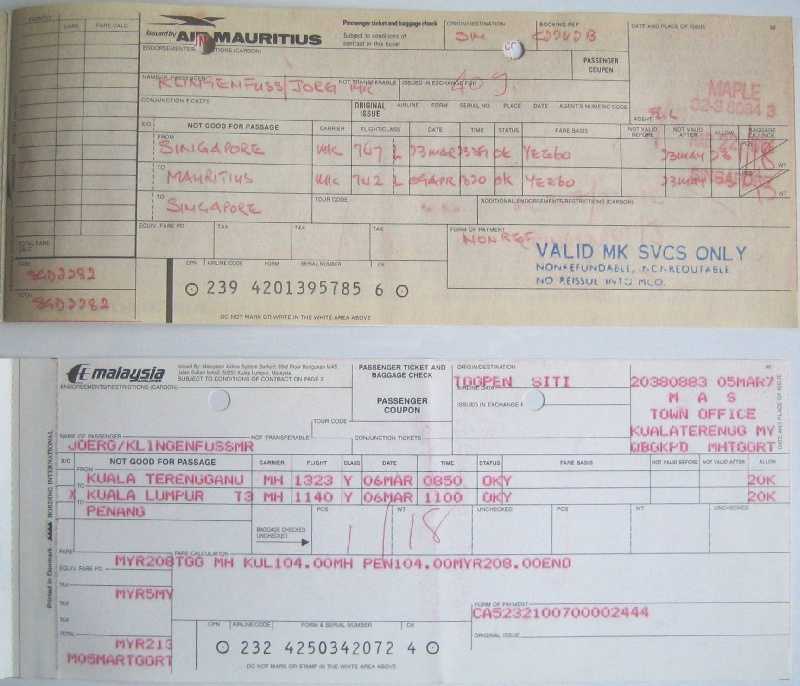 Issued by AIR MAURITIUS
Passenger ticket and baggage check
Subject to conditions of
contract in this issue
ORIGIN/DESTINATION
SIN
BOOKING REF
DATE AND PLACE OF ISSUE
PASSENGER
COUPON
NAME OF PASSENGER
NOT TRANSFERABLE
ISSUED IN EXCHANGE FOR
KLINGENFUSS/JOERG MR
409.
MAPLE
CONJUNCTION TICKETS
ORIGINAL ISSUE
AIRLINE FORM SERIAL NO. PLACE DATE AGENT'S NUMERIC CODE
AGENT
X/O NOT GOOD FOR PASSAGE CARRIER FLIGHT/CLASS DATE TIME STATUS FARE BASIS NOT VALID BEFORE NOT VALID AFTER ALLOW
FROM SINGAPORE MK 747 L 23MAR 2359 OK YEE60 23MAY
TO MAURITIUS MK 742 L 09APR 1320 OK YEE60 23MAY
TO SINGAPORE
TOUR CODE
ADDITIONAL ENDORSEMENTS/RESTRICTIONS (CARBON)
EQUIV. FARE PD. TAX TAX TAX
FORM OF PAYMENT
NONREF
VALID MK SVCS ONLY
NONREFUNDABLE, NON-REROUTABLE
NO REISSUE INTO MCO.
TOTAL FARE CALC.
FARE
SGD2282
TOTAL
SGD2282
CPN AIRLINE CODE FORM SERIAL NUMBER CK
239 4201395785 6
DO NOT MARK OR WRITE IN THE WHITE AREA ABOVE
malaysia
SUBJECT TO CONDITIONS OF CONTRACT ON PAGE 2
ENDORSEMENTS/RESTRICTIONS (CARBON)
PASSENGER TICKET AND
BAGGAGE CHECK
PASSENGER
COUPON
ORIGIN/DESTINATION
TGGPEN SITI
ISSUED IN EXCHANGE
20380883 05MAR7
M A S
TOWN OFFICE
KUALATERENUG MY
QBGKPD MHTGGRT
DATE AND PLACE OF ISSUE
TOUR CODE
NAME OF PASSENGER
NOT TRANSFERABLE
CONJUNCTION TICKETS
JOERG/KLINGENFUSSMR
X/O NOT GOOD FOR PASSAGE CARRIER FLIGHT CLASS DATE TIME STATUS FARE BASIS NOT VALID BEFORE NOT VALID AFTER ALLOW
FROM KUALA TERENGANU MH 1323 Y 06MAR 0850 OKY 20K
X TO KUALA LUMPUR T3 MH 1140 Y 06MAR 1100 OKY 20K
TO PENANG
BAGGAGE CHECKED UNCHECKED
PCS WT UNCHECKED PCS WT UNCHECKED
1 / 18
FARE
FARE CALCULATION
MYR208TGG MH KUL104.00MH PEN104.00MYR208.00END
EQUIV. FARE PD.
TAX
MYR5MY
TAX
FORM OF PAYMENT
CA5232100700002444
TOTAL
MYR213
M05MARTGGRT
ORIGINAL ISSUE
CPN AIRLINE CODE FORM & SERIAL NUMBER CK
232 4250342072 4
DO NOT MARK OR STAMP IN THE WHITE AREA ABOVE
Printed in Denmark BORDING INTERNATIONAL